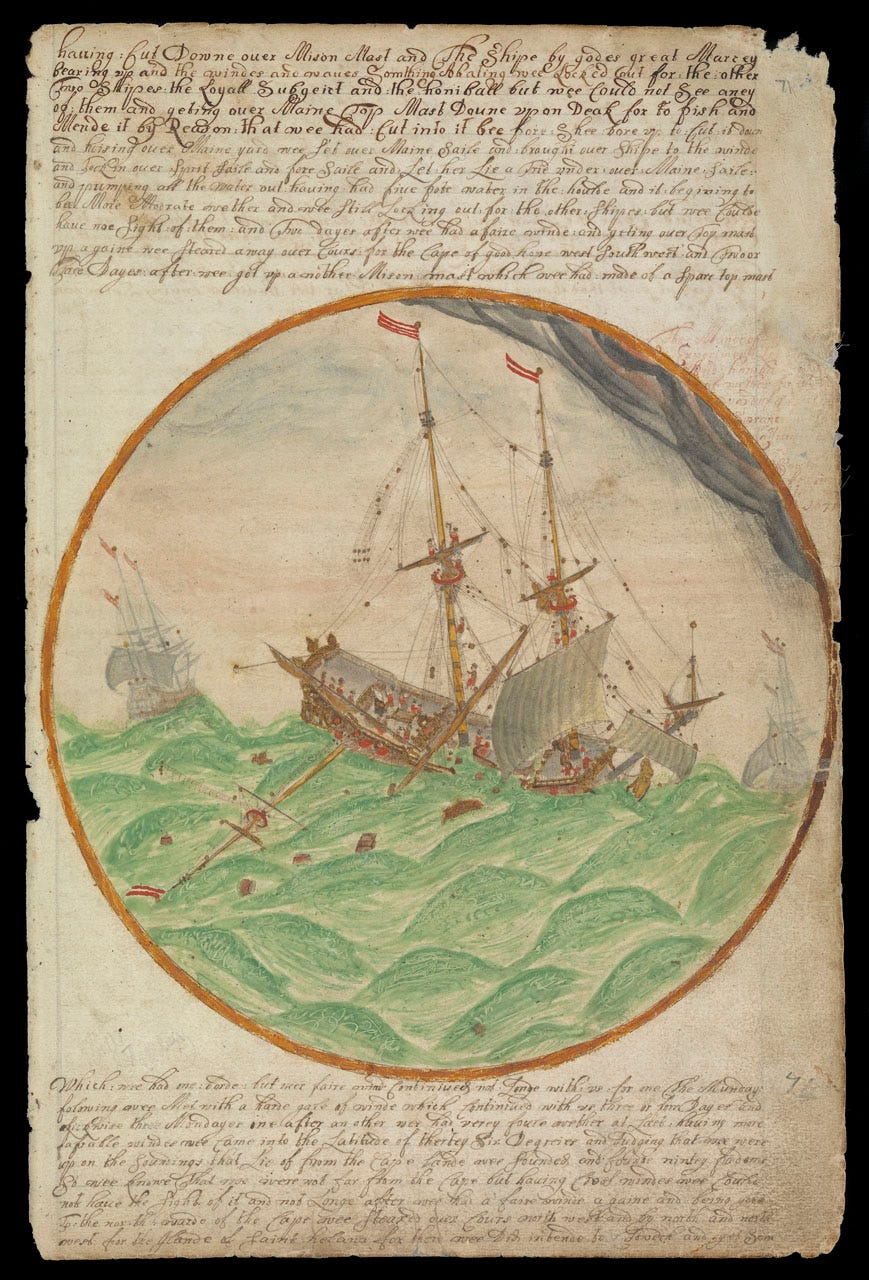 having : Cut Downe over Mison Mast and The Shipe by godes great Marcey
bearing vp and the windes and waves Somthing abating wee Locked Out for : the : other
Two Shipes : the Loyall Subgeict and the honiball but wee Could not See aney
of : them and geting over Maine Top Mast Doune vpon Deak for to fish and
Mende it by Reason : that wee had : Cut into it bee fore : Shee bore vp to : Cut it down
and huising over Maine yard wee Set over Maine Saile and brought over Shipe to the winde
and Tock in over Sprit Saile and fore Saile and Let her Lie a Trie vnder over Maine Saile :
and pumping all the water out having had five fote water in the houlde and it begining to
be More Moderate wether and wee Still Lock ing out for the other Shipes : but wee Coulde
have noe Sight of : them : and Two dayes after wee had a faire winde : and geting over Top mast
vp a gaine wee Steared away over Cours : for the Cape of good hope west South west and Two or
Dayes : after wee : got vp a nother Mison : mast which wee had made of a Spare top mast
Which : wee had one : borde : but over faire winde Continued not Longe with : vs : for one The Munday
folowing wee Met with a harde gale of winde which Continued with vs three or Dayes and
three Mondayes one after an other wee had verey foule wether at Last having more
windes wee came into the Latitude of thertey Six Degreies and Judging that wee were
vp on the Soundings that Lie of from the Cape Lande wee Sounded and ninty
So wee knowe That wee were not far from the Cape but having windes wee Coulde
not have the Sight of it and not Longe after wee had a faire winde a gaine and being
To : the north : warde of the Cape wee Steared over Cours north west and by north and north
west for the Ilande of Saint helena for there wee Did intende to Touch and